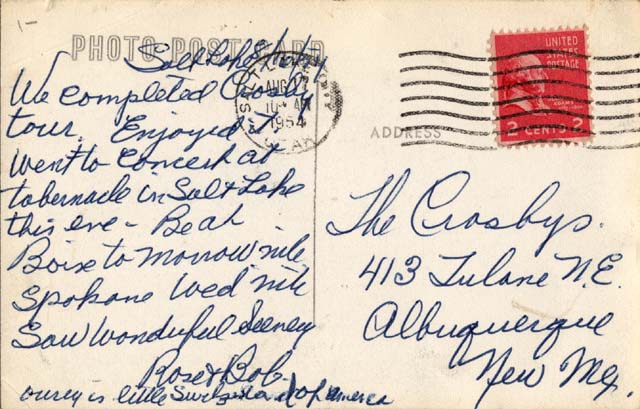 PHOTO POST CARD
Salt Lake
We completed Crosby
tour. Enjoyed it
went to Concert at
tabernacle in Salt Lake
this eve - Be at
Boise tomorrow nite
Spokane Wed nite
Saw Wonderful Scenery
Rose & Bob.
ouray is little Switzerland of America
SALT LAKE CITY
AUG
10 AM
1954
UTAH
ADDRESS
UNITED
STATES
POSTAGE
ADAMS
2 CENTS 2
The Crosbys.
413 Tulane N.E.
Albuquerque
New Mex.